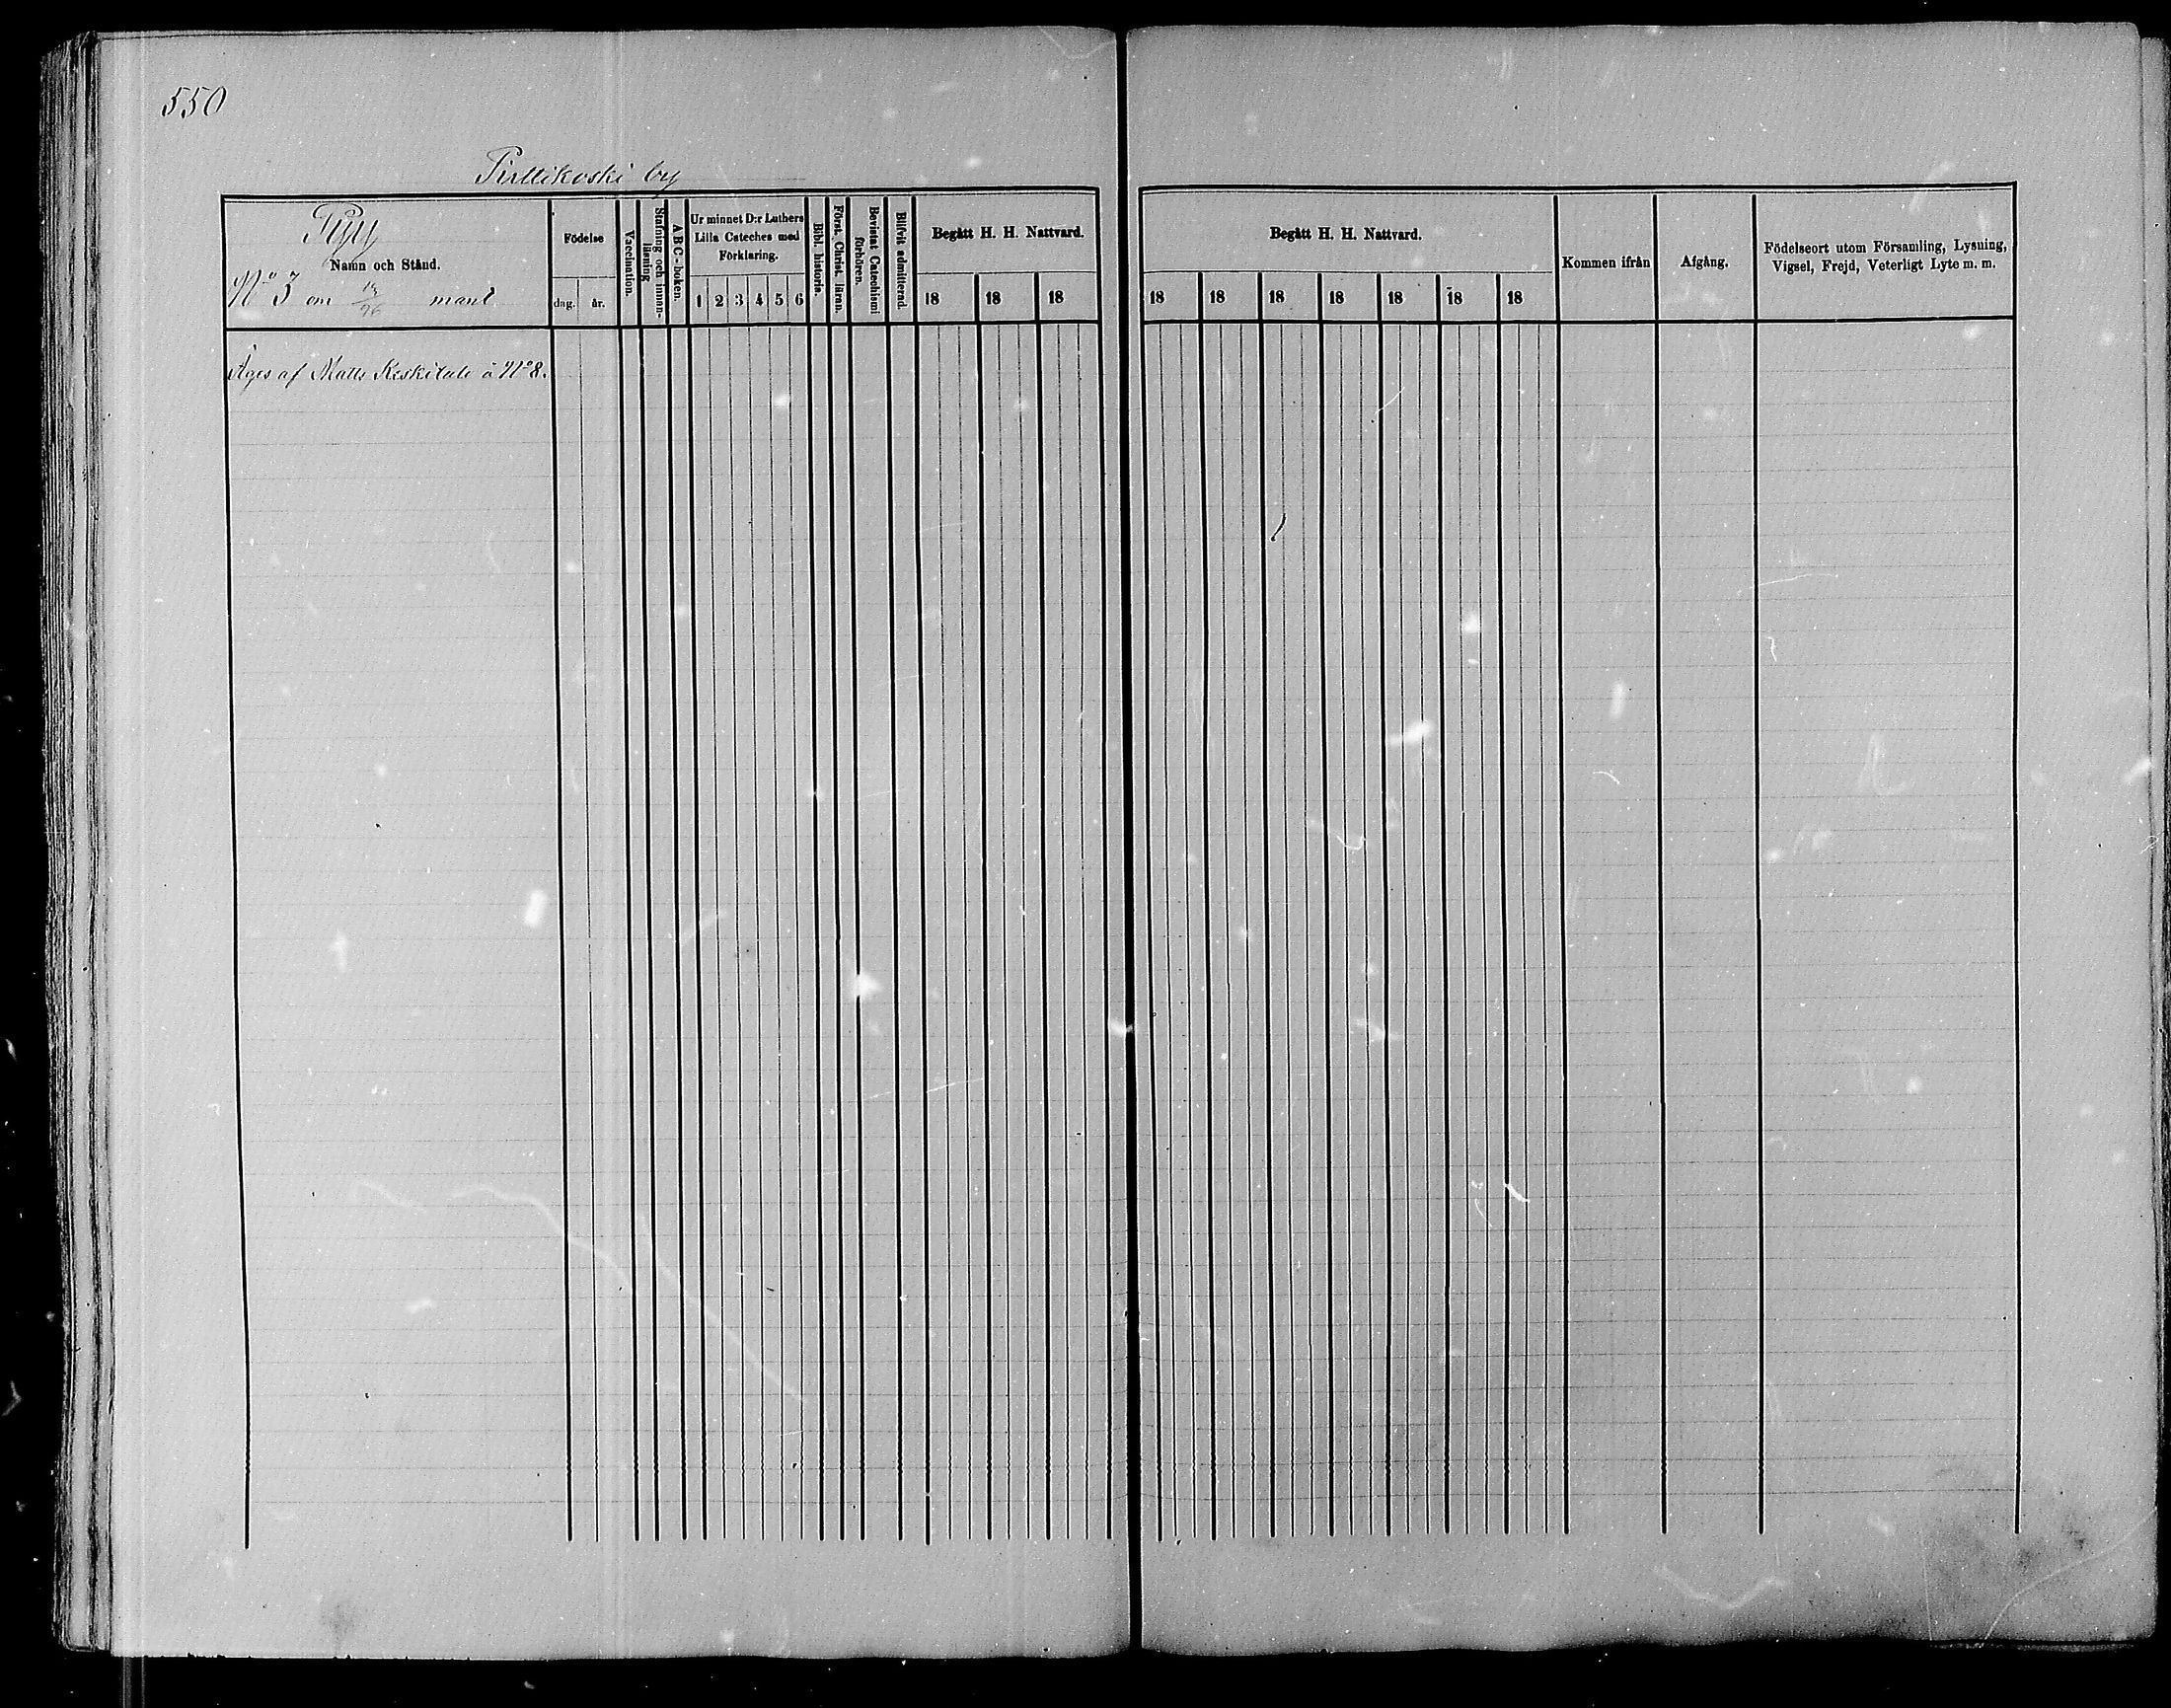 550
Pirttikoski by
Pyy
Namn och Stånd.
No 3 om /96 mant
Födelse
dag. år.
Vaccination.
Stafning och innan-
läsning
A B C - boken.
Ur minnet D:r Luthers
Lilla Cateches med
Förklaring.
1 2 3 4 5 6
Bibl. historia.
Först. Christ. läran.
Bevistat Catechismi
förhören.
Blifvit admitterad.
Begått H. H. Nattvard.
18 18 18
Begått H. H. Nattvard.
18 18 18 18 18 18 18
Kommen ifrån
Afgång.
Födelseort utom Församling, Lysning,
Vigsel, Frejd, Veterligt Lyte m. m.
Äges af Matts Keskitalo å No 8.